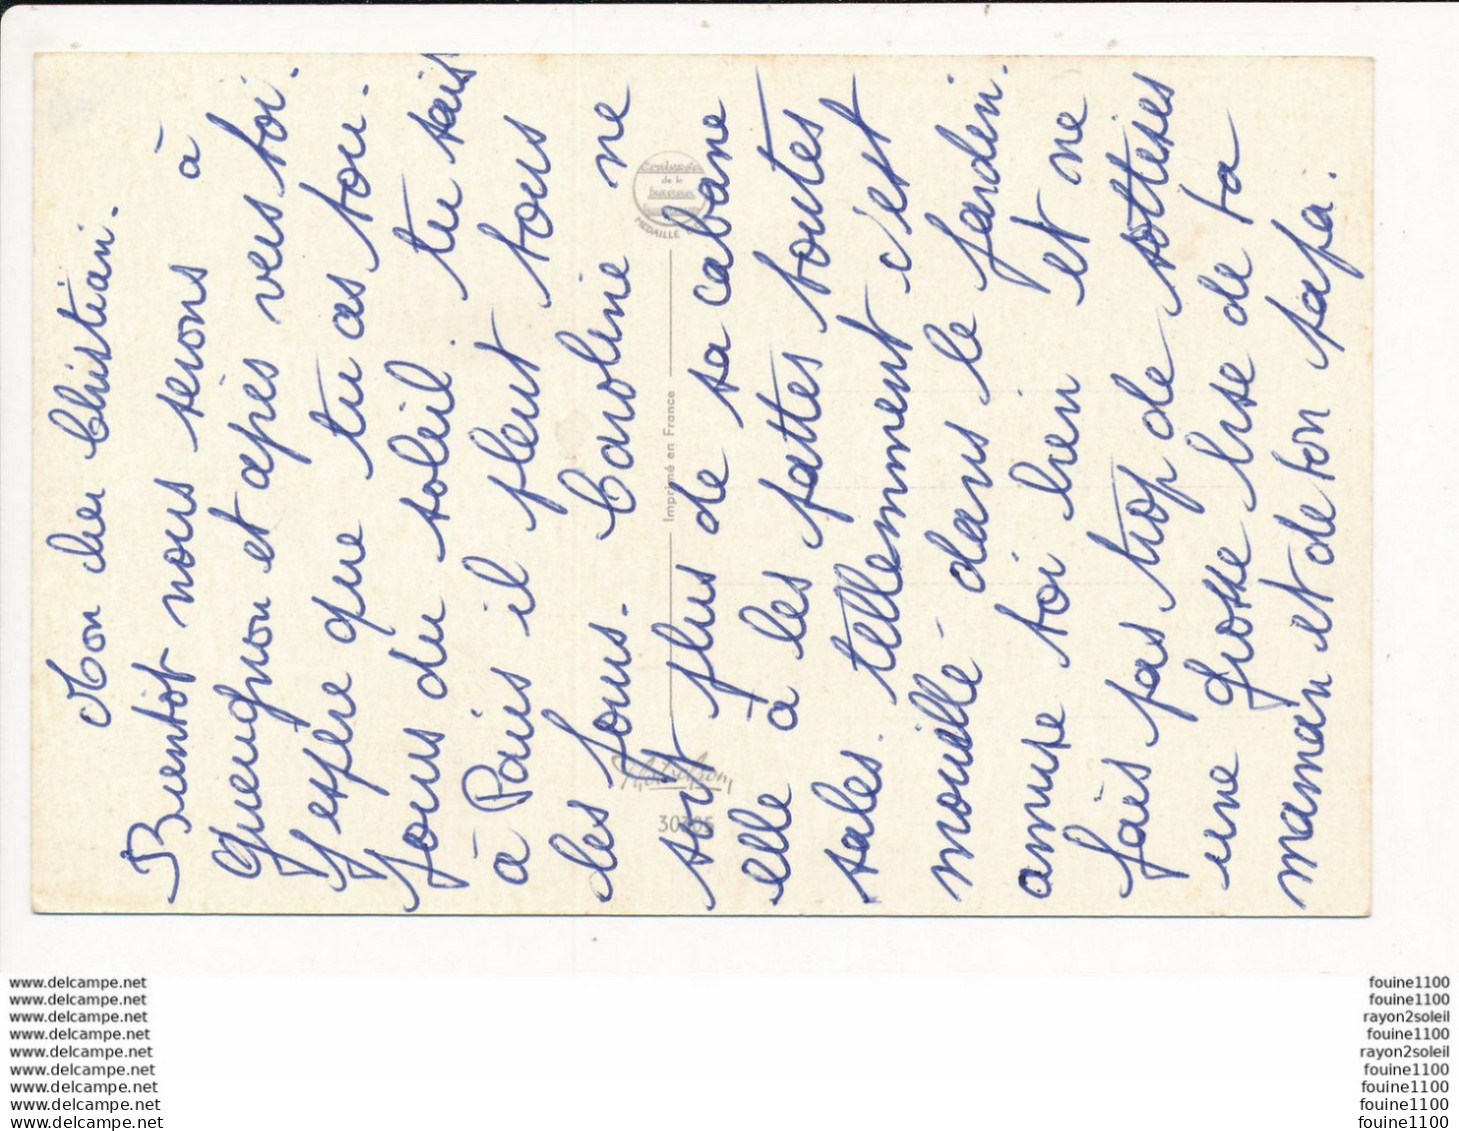 Mon cher Christian.
Bientôt nous serons à
Gueugnon et après vers toi.
J'espère que tu as tou-
jours du soleil tu sais
à Paris il pleut tous
les jours. Caroline ne
sort plus de sa cabane
elle à les pattes toutes
sales. tellemment c'est
mouillé - dans le jardin.
amuse toi bien et ne
fais pas trop de sottises
une grosse bise de ta
maman et de ton papa.
MEDAILLE
Imprimé en France
30305
www.delcampe.net
www.delcampe.net
www.delcampe.net
www.delcampe.net
www.delcampe.net
www.delcampe.net
www.delcampe.net
www.delcampe.net
www.delcampe.net
fouine1100
fouine1100
rayon2soleil
fouine1100
rayon2soleil
fouine1100
fouine1100
fouine1100
fouine1100